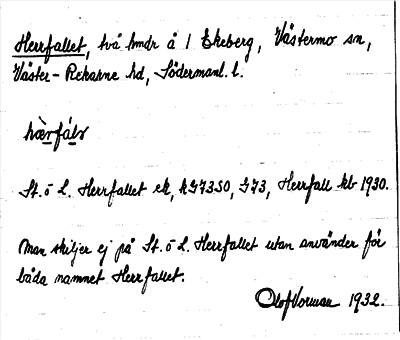 Herrfallet, två hmdr å 1 Ekeberg, Västermo sn,
Väster-Rekarne hd, Södermanl. l.
hærfálə
St. o L. Herrfallet ek, RG73SO, J73, Herrfall kb 1930.
Man skiljer ej på St. o L. Herrfallet utan använder för
båda namnet Herrfallet.
Olof Vorman 1932.